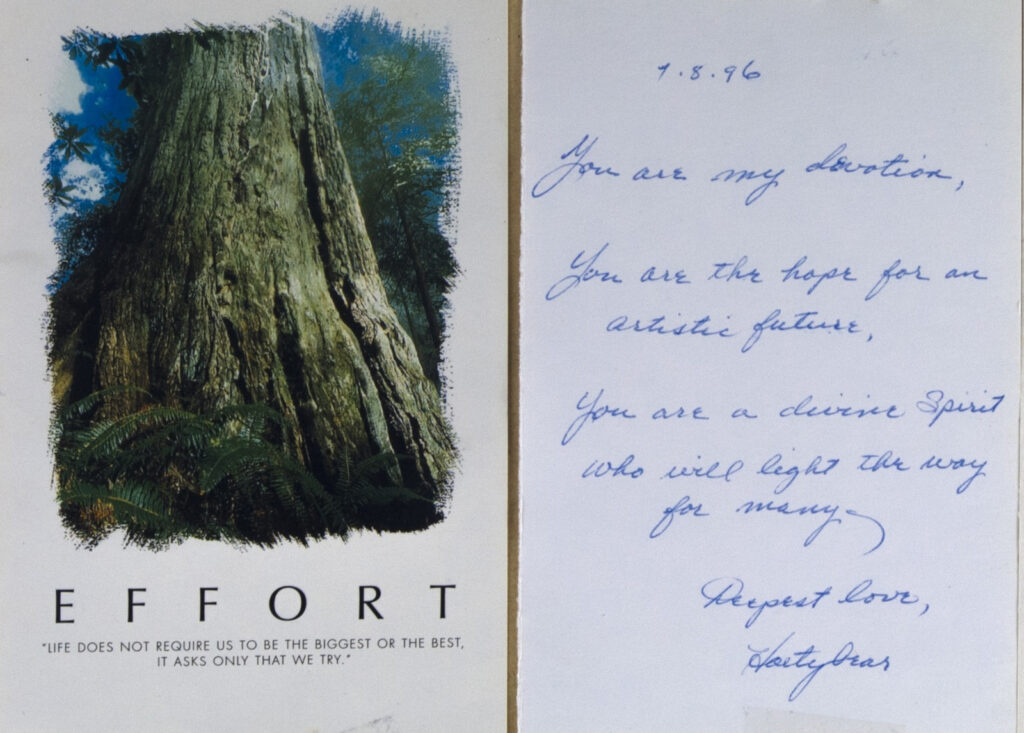 EFFORT
"LIFE DOES NOT REQUIRE US TO BE THE BIGGEST OR THE BEST,
IT ASKS ONLY THAT WE TRY."
7.8.96
You are my devotion,
You are the hope for an
artistic future,
You are a divine Spirit
who will light the way
for many
Deepest love,